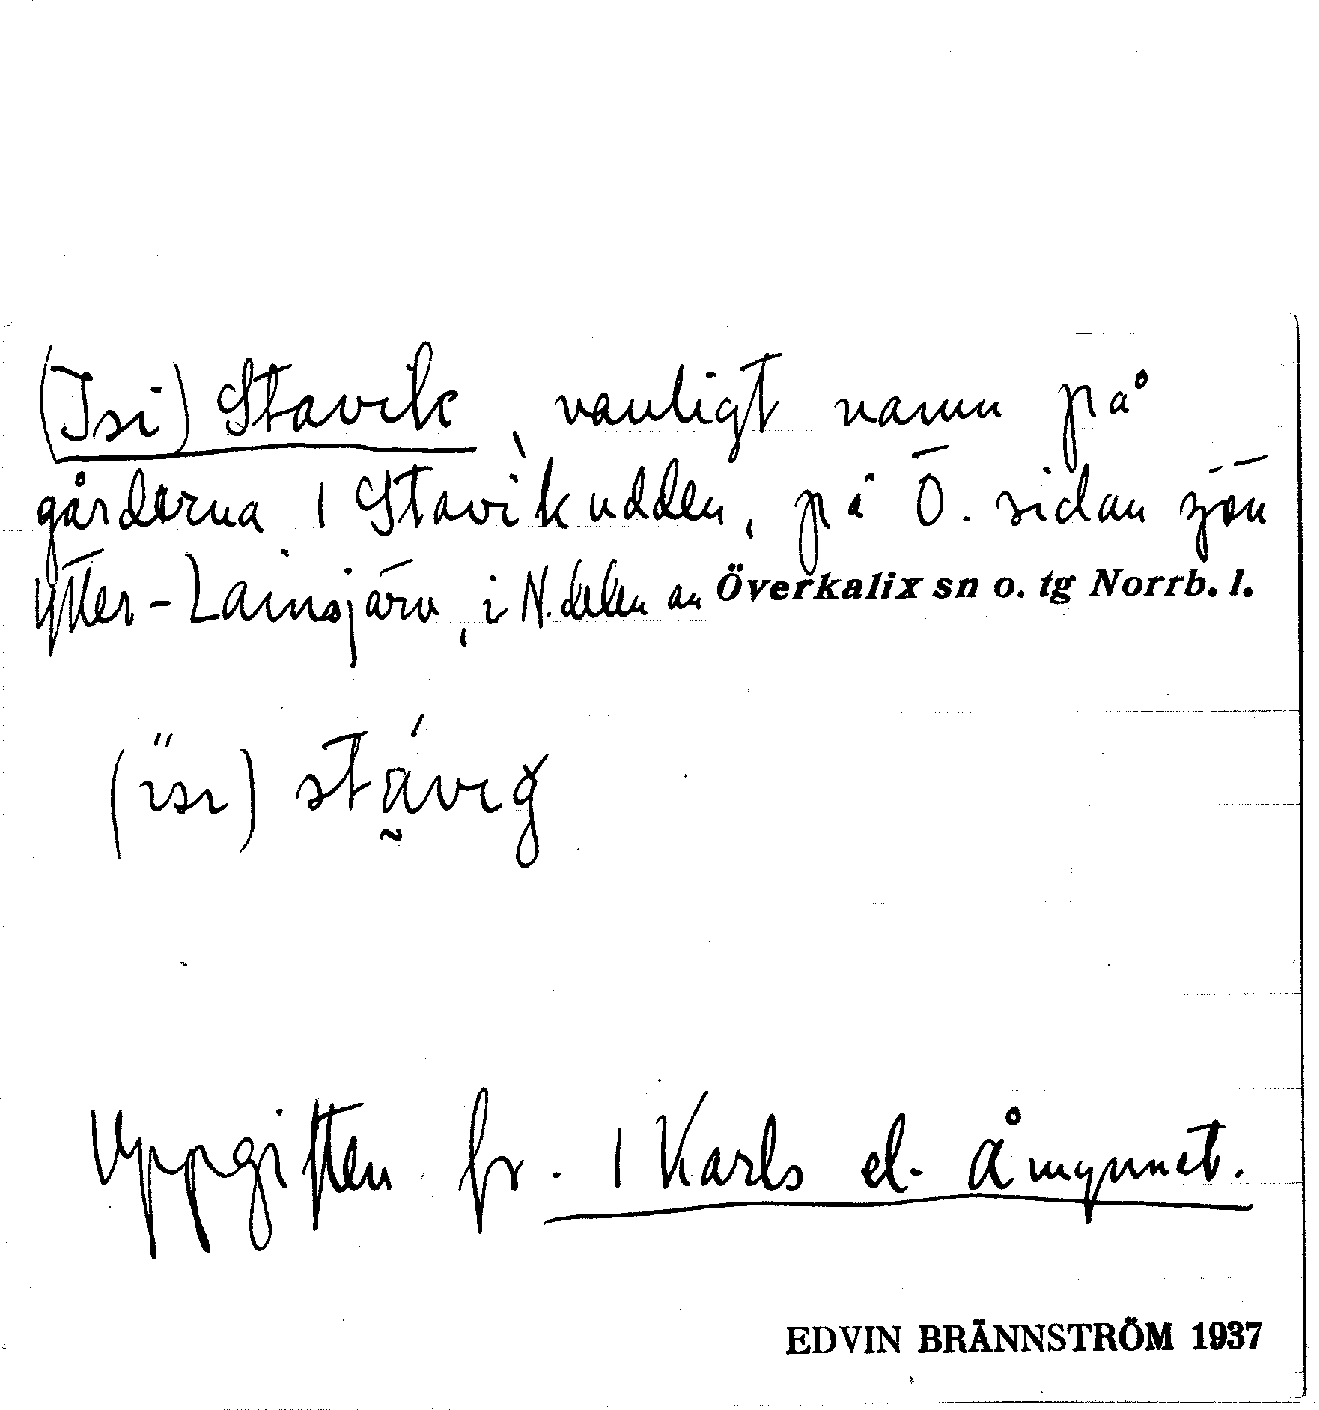 (Isi) Stavik, vanligt namn på
gårderna i Stavikudden, på Ö. sidan sjön
Ytter-Lainsjärv, i N. delen av Överkalix sn o. tg Norrb. l.
(ïsi) stávig
Uppgiften fr. i Karls el. Åmynnet.
EDVIN BRÄNNSTRÖM 1937